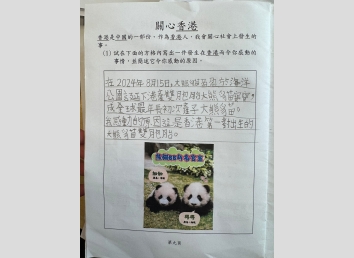 關心香港
香港是中國的一部份。作為香港人，我會關心社會上發生的
事。
(1) 試在下面的方格內寫出一件發生在香港而令你感動的
事情，並簡述它令你感動的原因。
在2024年8月15日，大熊貓盈盈在海洋
公園誕下龍鳳雙胞胎大熊貓寶寶，
成為全球最年長初次產子大熊貓。
我感動的原因這是香港第一對出生的
大熊貓雙胞胎。
第九頁